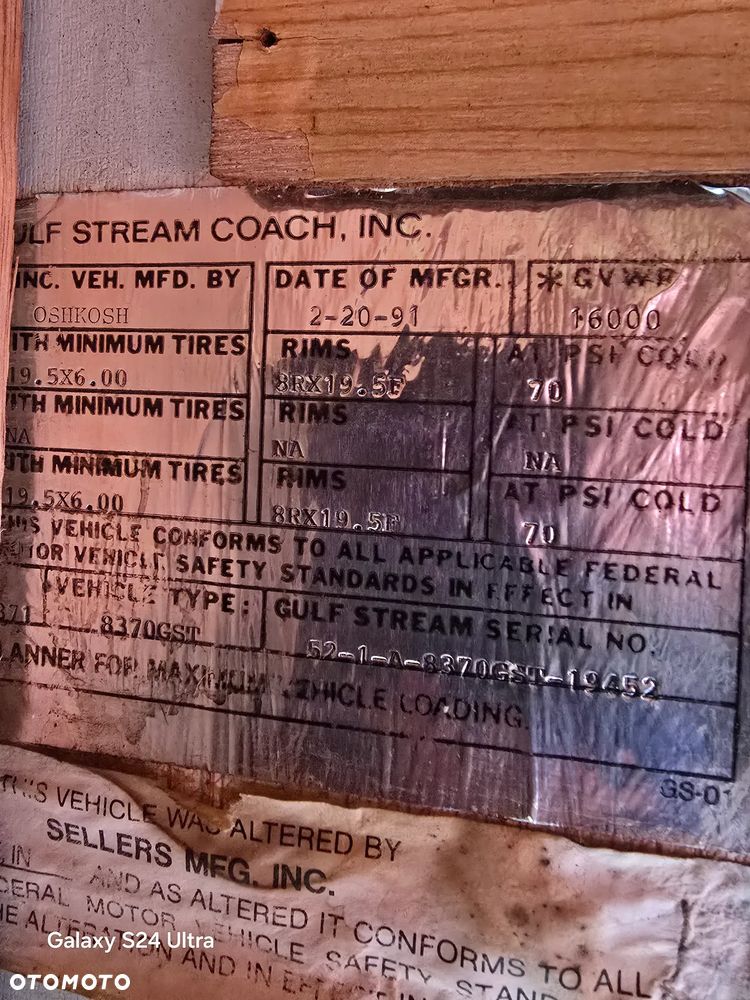 ULF STREAM COACH, INC.
INC. VEH. MFD. BY DATE OF MFGR. *GVWR
OSHKOSH 2-20-91 16000
ITH MINIMUM TIRES RIMS AT PSI COLD
19.5X6.00 8RX19.5F 70
ITH MINIMUM TIRES RIMS AT PSI COLD
NA NA NA
ITH MINIMUM TIRES RIMS AT PSI COLD
19.5X6.00 8RX19.5F 70
VEHICLE CONFORMS TO ALL APPLICABLE FEDERAL
TOR VEHICLE SAFETY STANDARDS IN EFFECT IN
VEHICLE TYPE: GULF STREAM SERIAL NO.
371 8370GST 52-1-A-8370GST-19452
ANNER FOR MAXIMUM VEHICLE LOADING.
GS-01
THIS VEHICLE WAS ALTERED BY
SELLERS MFG. INC.
IN AND AS ALTERED IT CONFORMS TO ALL
DERAL MOTOR VEHICLE SAFETY STAND
HE ALTERATION AND IN EFFECT IN
Galaxy S24 Ultra
OTOMOTO